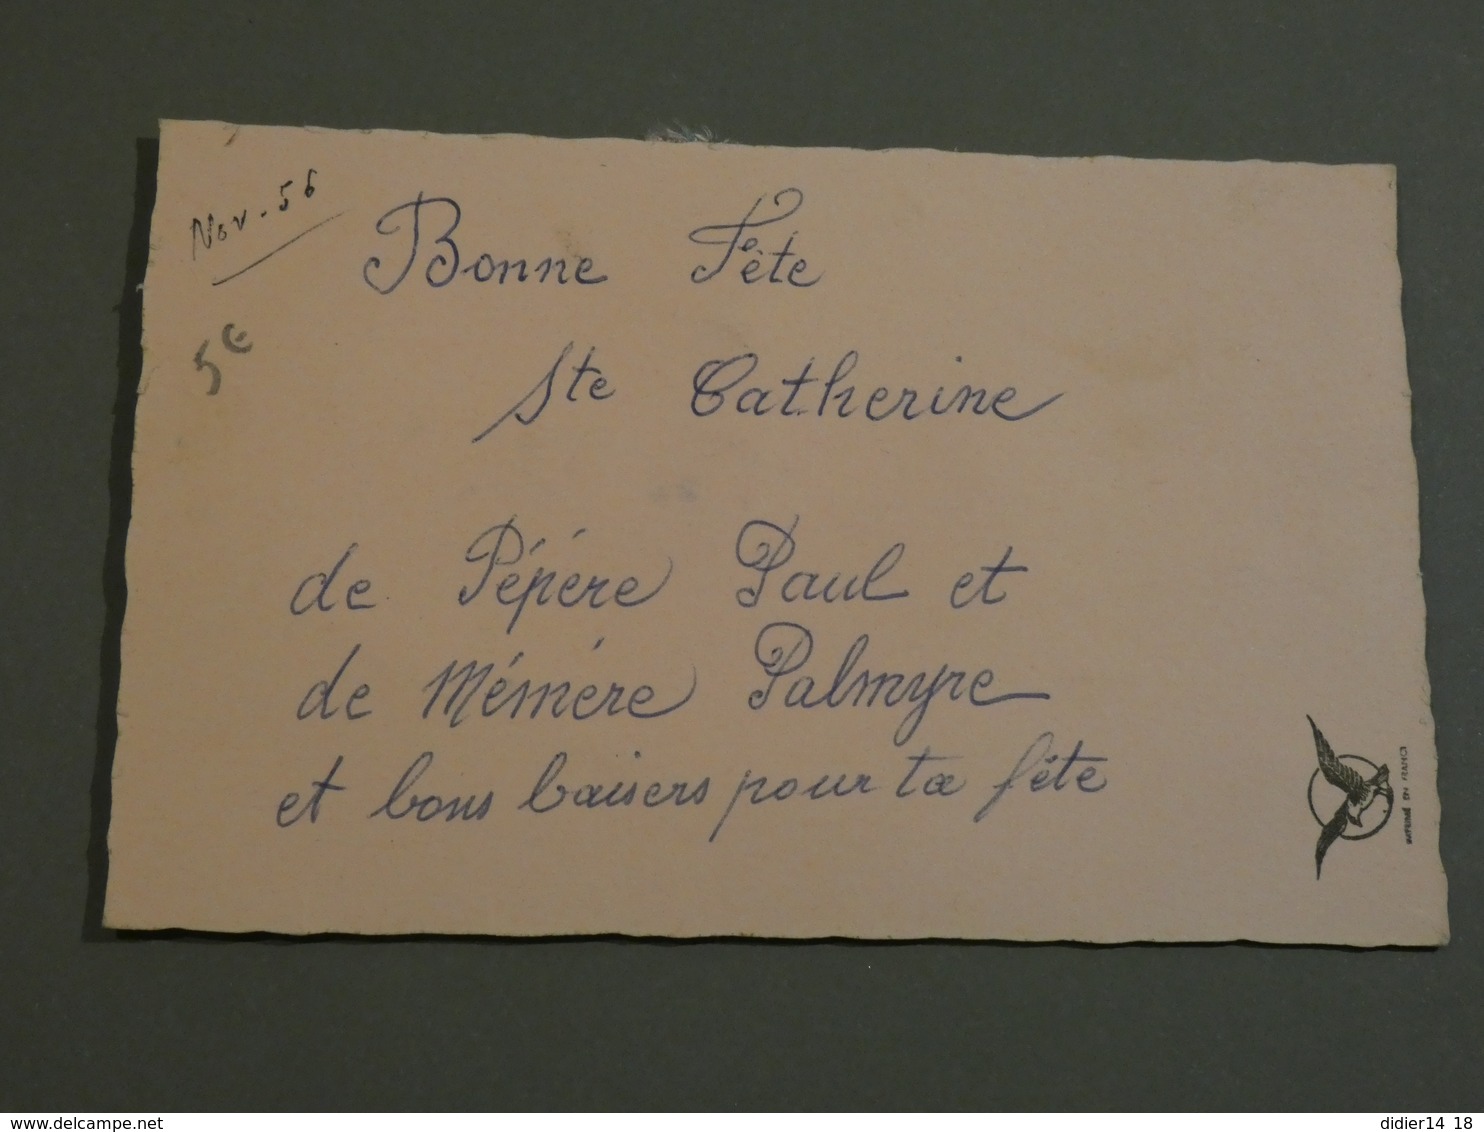 Nov - 56
Bonne Fête
5€
Ste Catherine
de Pépére Paul et
de Mémére Palmyre
et bons baisers pour ta fête
IMPRIMÉ EN FRANCE
www.delcampe.net
didier14 18